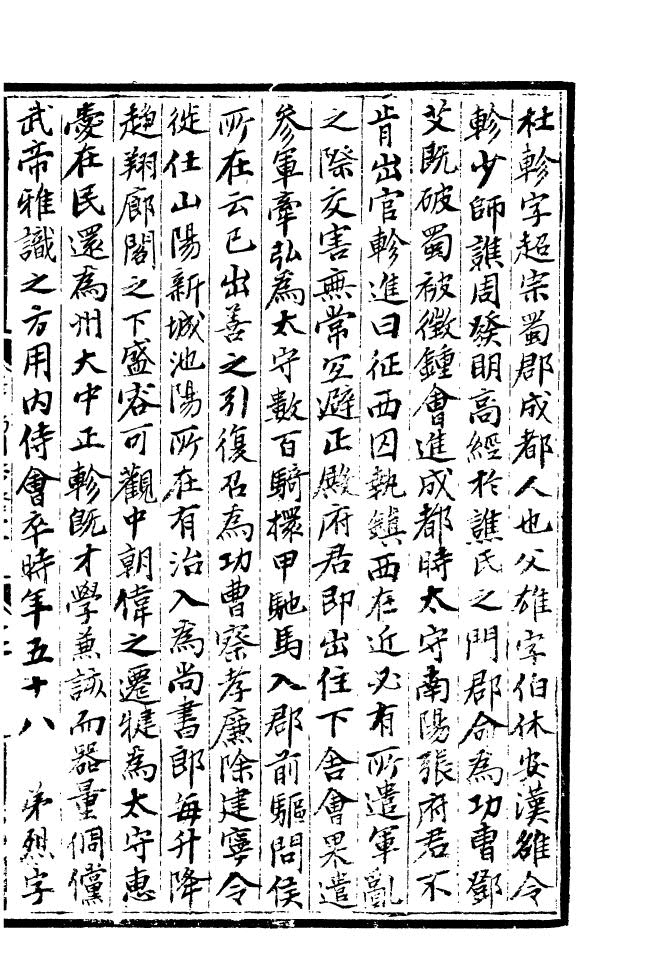 杜軫字超宗蜀郡成都人也父雄字伯休安漢雒令
軫少師譙周發明高經於譙氏之門郡命為功曹鄧
艾既破蜀被徵鍾會進成都時太守南陽張府君不
肯出官軫進曰征西囚執鎮西在近必有所遣軍亂
之際交害無常宜避正殿府君即出住下舍會果遣
參軍牽弘為太守數百騎擐甲馳馬入郡前驅問侯
所在云已出善之引復召為功曹察孝廉除建寧令
徙任山陽新城池陽所在有治入為尚書郎每升降
趨翔廊閣之下盛容可觀中朝偉之遷犍為太守惠
愛在民還為州大中正軫既才學兼該而器量倜儻
武帝雅識之方用内侍會卒時年五十八　弟烈字